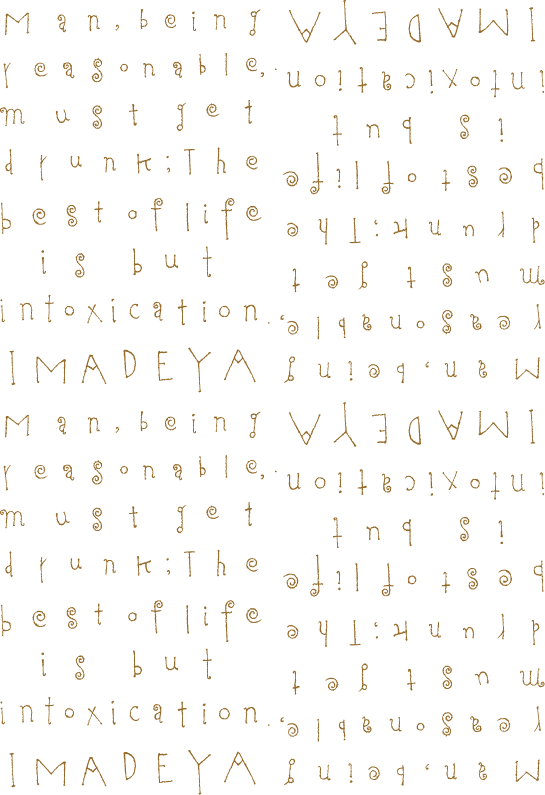 Man, being
reasonable,
must get
drunk; The
best of life
is but
intoxication.
IMADEYA
Man, being
reasonable,
must get
drunk; The
best of life
is but
intoxication.
IMADEYA
Man, being
reasonable,
must get
drunk; The
best of life
is but
intoxication
IMADEYA
Man, being
reasonable,
must get
drunk; The
best of life
is but
intoxication
IMADEYA